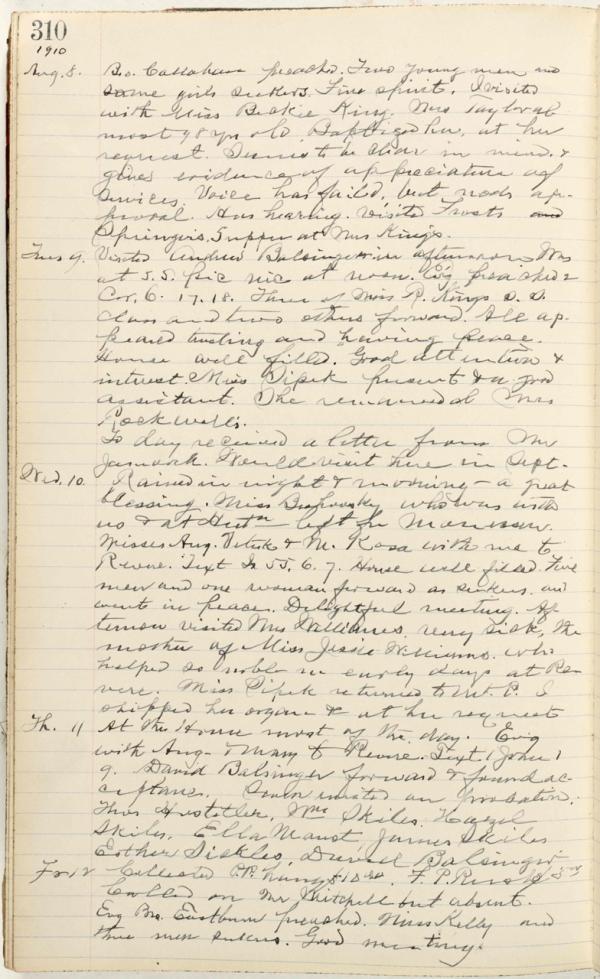 310
1910
Aug. 8. Bro. Callahan preached. Two young men and
some girls seekers. Fine spirit. I visited
with Miss Beckie King. Mrs Taylor al
most 98 yrs old. Baptized her, at her
request. Seems to be clear in mind. &
gives evidence of appreciation of
services. Voice has failed, but nods ap-
proval. Has hearing. Visited Frosts and
Springers. Supper at Mrs King's.
Tues 9. Visited Andrew Balsinger in afternoon. Was
at S.S. pic nic at noon. Ev'g preached 2
Cor. 6. 17. 18. Three of Miss R. Kings S. S.
class and two others forward. All ap-
peared trusting and having peace.
House well filled. Good attention &
interest. Miss Pipek present & a good
assistant. She remained at Mrs
Rockwell's.
To day received a letter from Mr
Would visit here in Sept.
Wed. 10. Rained in night & morning - a great
blessing. Miss who was with
us & at left for
Misses Aug. & M. Kosa with me to
Revere. Text Is 55. 6. 7. House well filled. Five
men and one woman forward as seekers and
went in peace. Delightful meeting. Af
ternoon visited Mrs Williams, very sick, the
mother of Miss Jessie Williams who
helped so noble in early days at Re-
vere. Miss Pipek returned to Mt. P. I
shipped her organ & at her request
Th. 11 At the House most of the day. Ev'g
with Aug. & Mary to Revere. Text 1 John 1
9. David Balsinger forward & found ac-
ceptance. Seven united on probation.
Thos Hostetler, Wm Skiles, Hazel
Skiles, Ella Maust, James Skiles
Esther Sickles, David Balsinger
Fr 12 Collected
Called on Mr Mitchell but absent.
Evg Bro. Eastburn preached. Miss Kelly and
three men seekers. Good meeting.